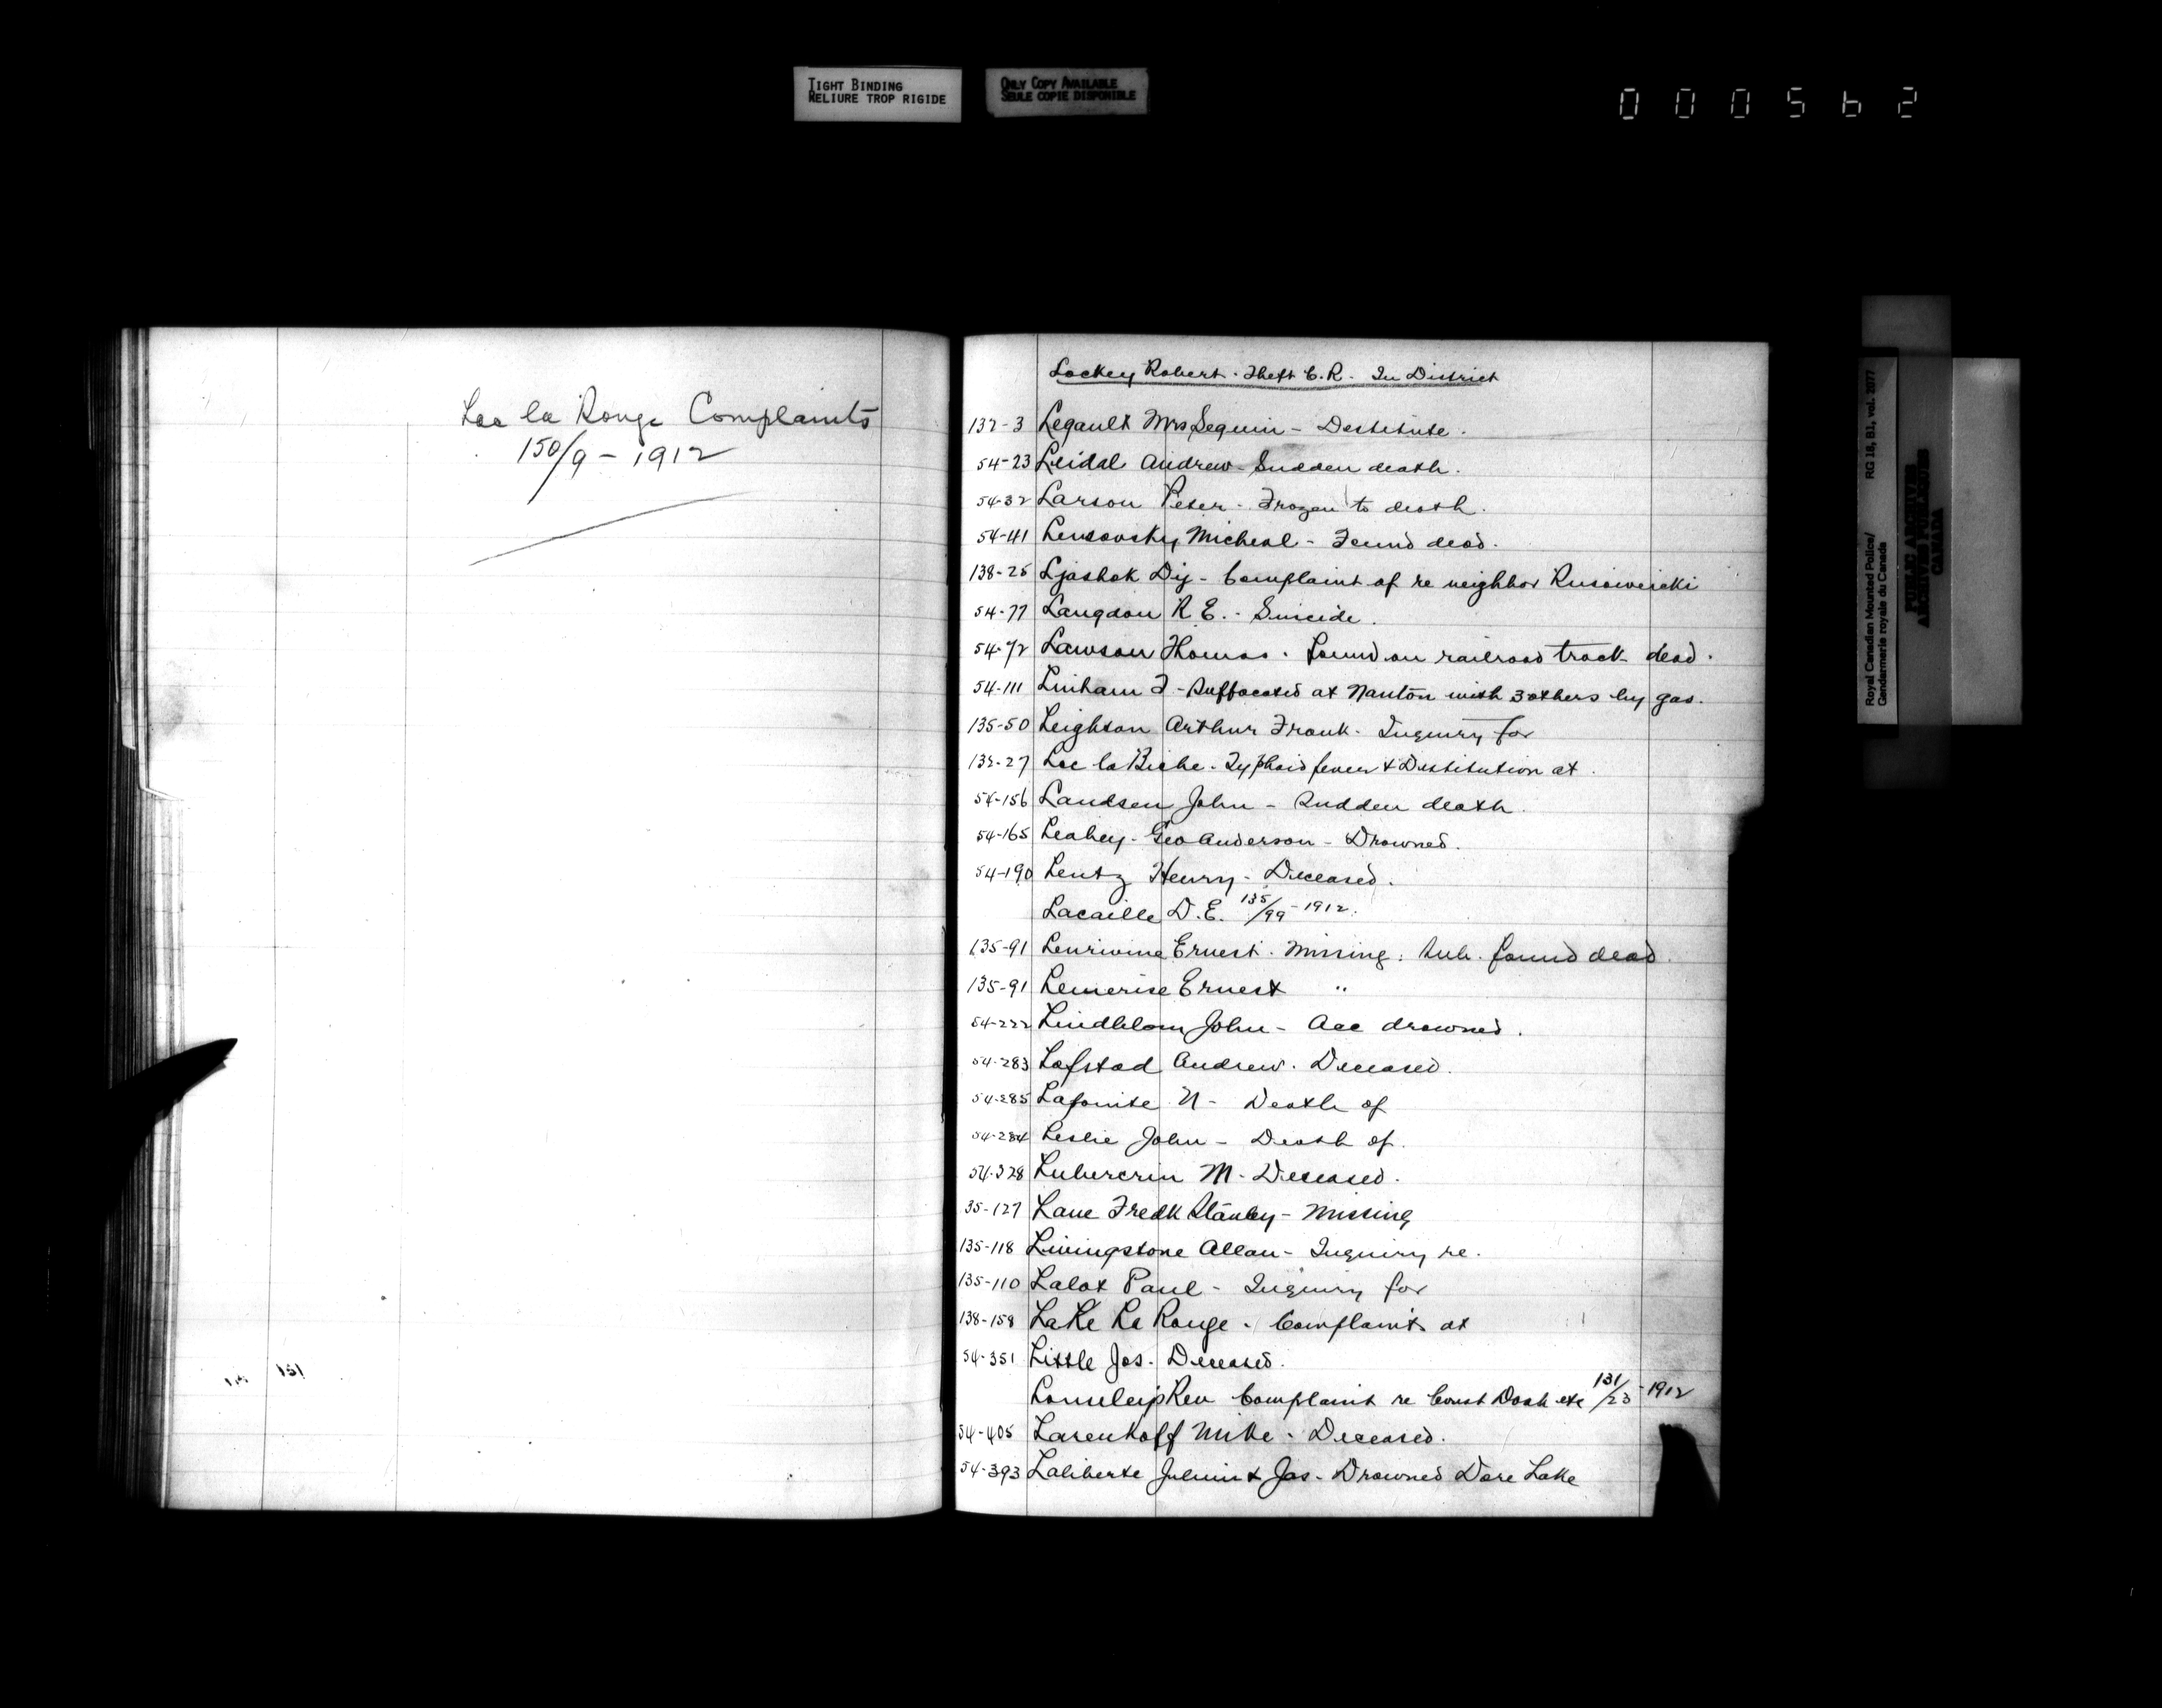 TIGHT BINDING
RELIURE TROP RIGIDE
ONLY COPY AVAILABLE
SEULE COPIE DISPONIBLE
000562
Lac la Ronge Complaints
150/9 - 1912
151
Lockey Robert. Theft C.R. In District
132-3 Legault Mrs Seguin - Destitute.
54-23 Leidal Andrew - Sudden death.
54-32 Larson Peter - Frozen to death.
54-41 Lensovsky Micheal - Found dead.
138-25 Ljashok Dij - Complaint of re neighbor
54-77 Langdon R E. - Suicide.
54-72 Lawson Thomas. Found on railroad track dead.
54-111 Linham F - Suffocated at Nanton with 3 others by gas.
135-50 Leighton Arthur Frank. Inquiry for
132-27 Lac la Biche. Typhoid fever & Destitution at.
54-156 Landsen John - Sudden death.
54-165 Leahey - Geo Anderson - Drowned.
54-190 Lentz Henry - Deceased.
Lacaille D.E. 135/99 - 1912.
135-91 Ernest. Missing. Sub. found dead.
135-91 Lemerise Ernest "
54-222 Lindblom John - Acc drowned.
54-283 Lofstad Andrew. Deceased.
54-285 Lafonise N - Death of
54-284 Leslie John - Death of.
54-328 M - Deceased.
35-127 Lane Fredk Stanley - Missing
135-118 Livingstone Allan - Inquiry re.
135-110 Lalot Paul - Inquiry for
138-158 LaKe La Ronge. Complaints at
54-351 Little Jas. Deceased.
Rev Complaint re Const Dosh etc 131/23 - 1912
54-405 Lasenkoff Mike - Deceased.
54-393 Laliberte & Jas - Drowned Dore Lake
Royal Canadian Mounted Police/ RG 18, B1, vol. 2077
Gendarmerie royale du Canada
PUBLIC ARCHIVES
ARCHIVES PUBLIQUES
CANADA